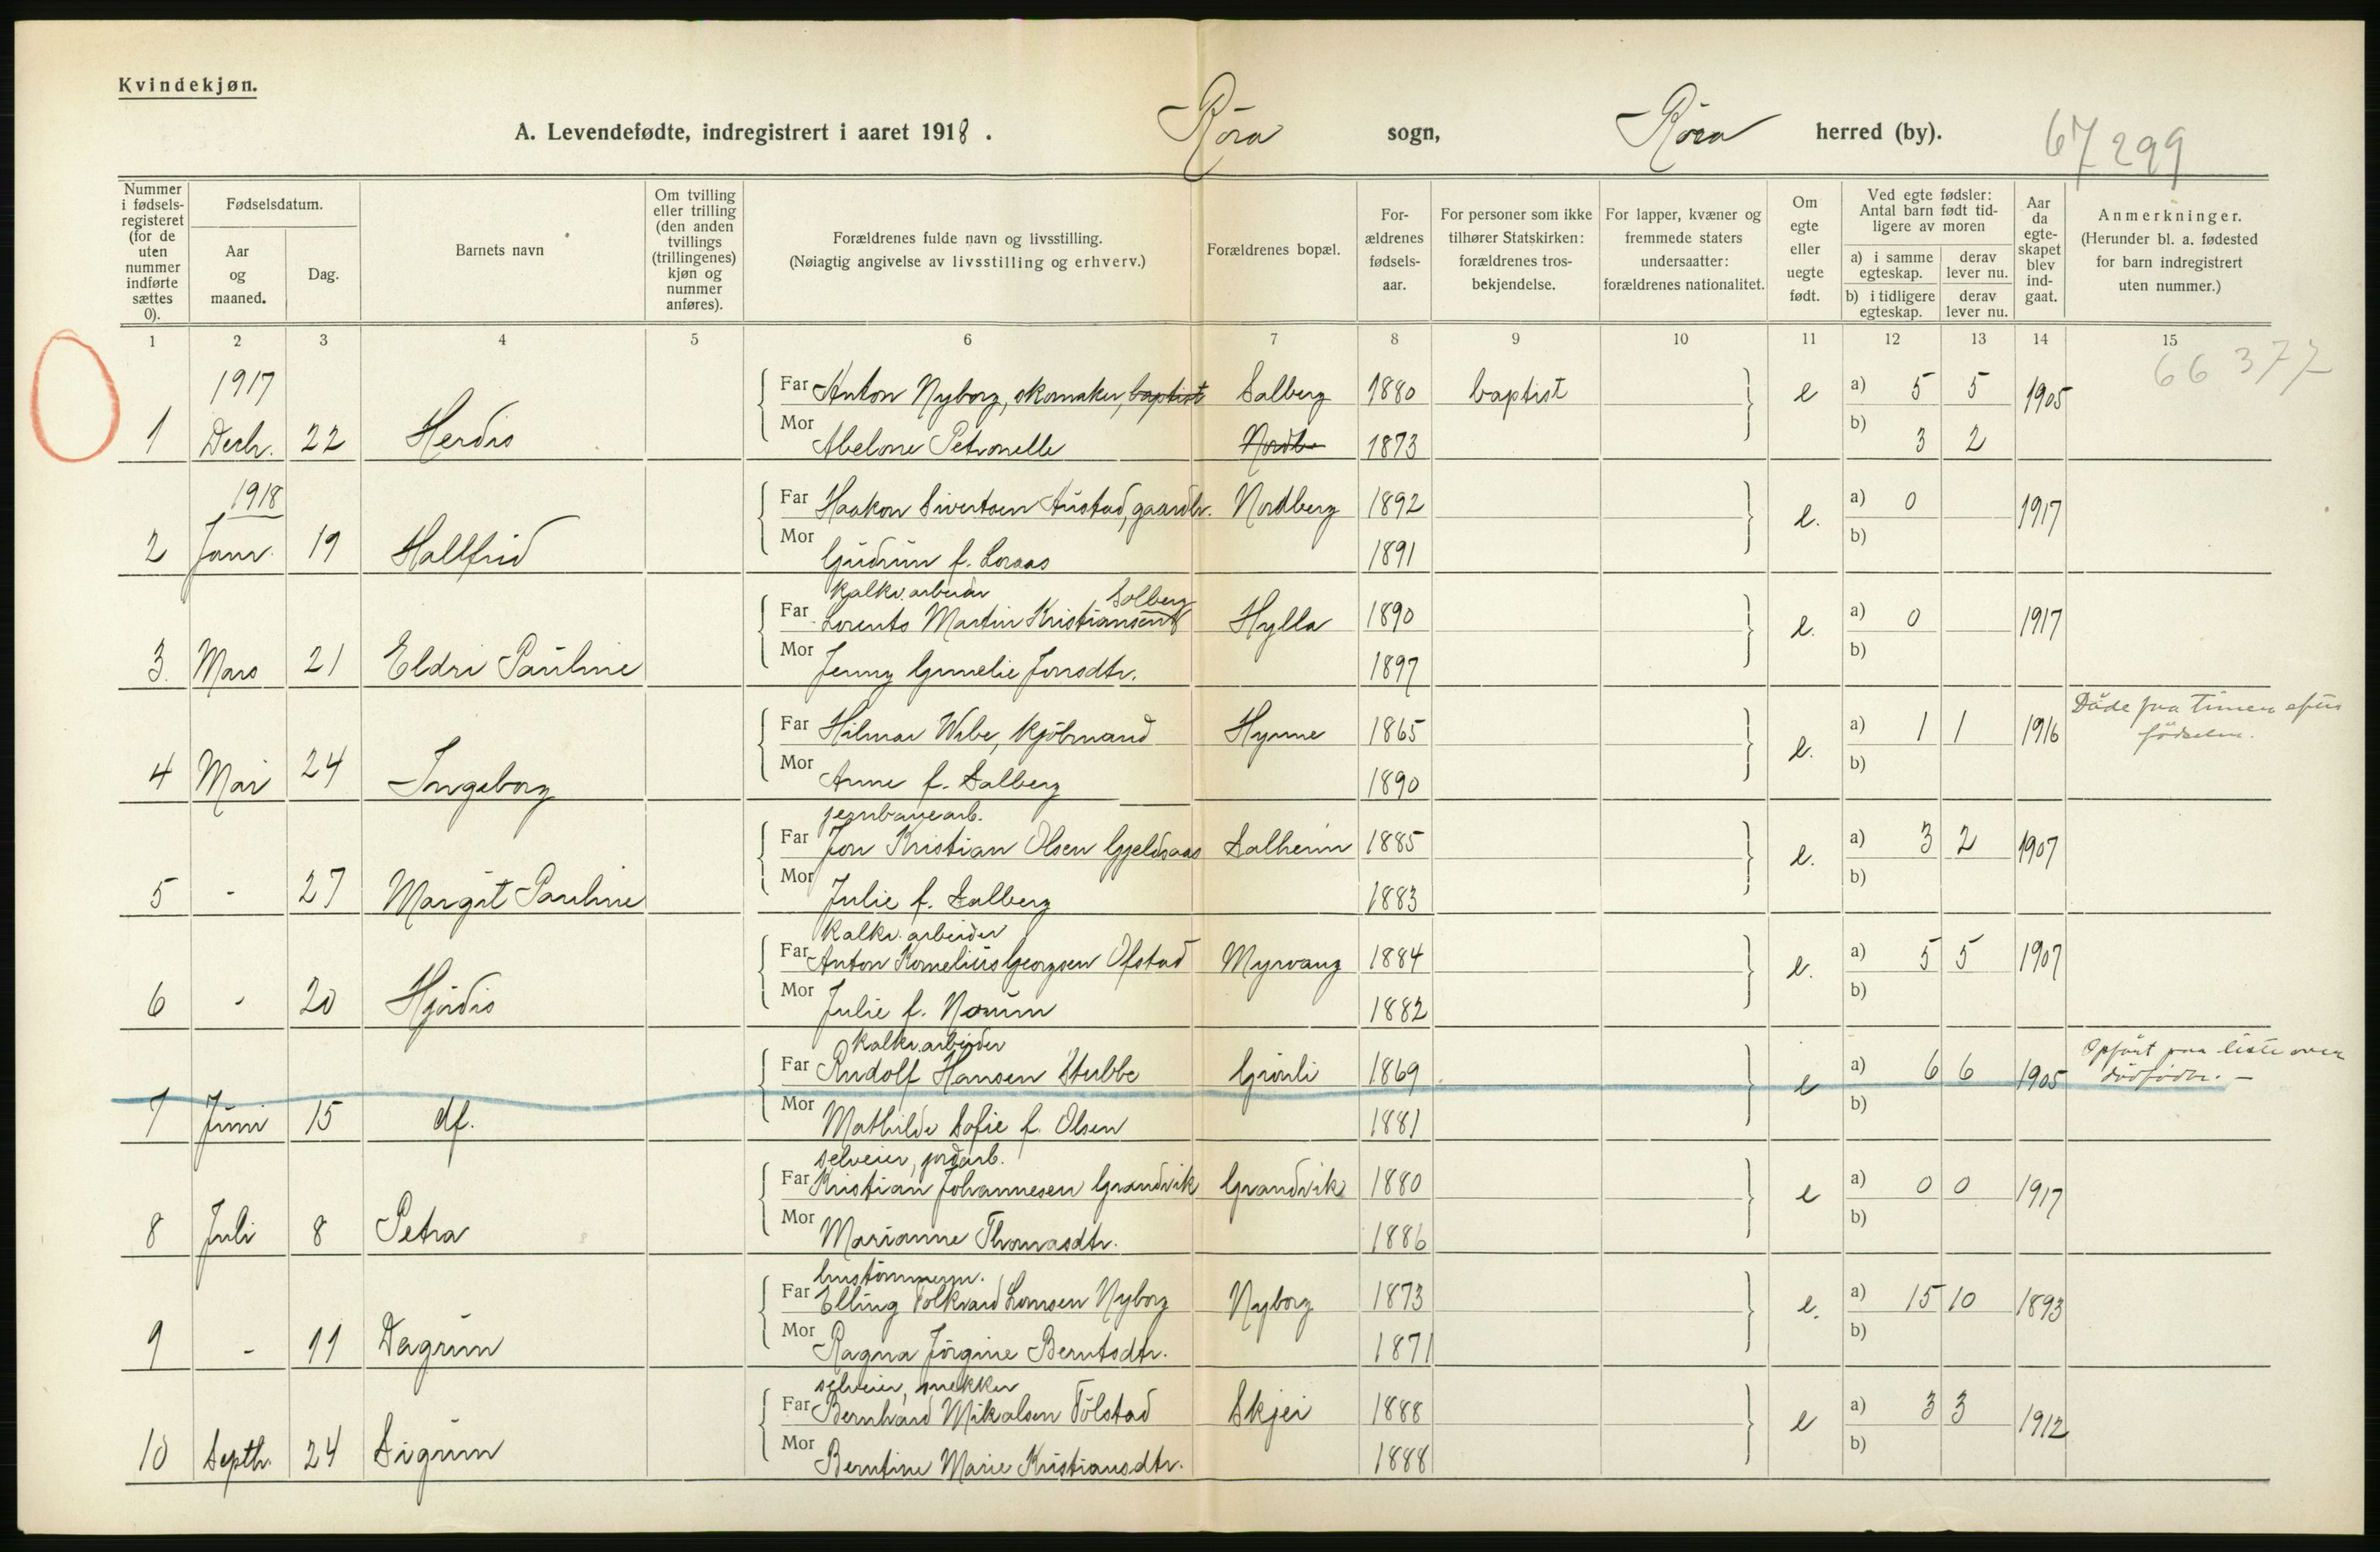 Kvindekjøn.
A. Levendefødte, indregistrert i aaret 1918. Röra sogn, Röra herred (by). 67 299
Nummer i fødselsregisteret (for de uten nummer indførte sættes 0).
Fødselsdatum.
Aar og maaned.
Dag.
Barnets navn
Om tvilling eller trilling (den anden tvillings (trillingenes) kjøn og nummer anføres).
Forældrenes fulde navn og livsstilling.
(Nøiagtig angivelse av livsstilling og erhverv.)
Forældrenes bopæl.
Forældrenes fødselsaar.
For personer som ikke tilhører Statskirken: forældrenes trosbekjendelse.
For lapper, kvæner og fremmede staters undersaatter: forældrenes nationalitet.
Om egte eller uegte født.
Ved egte fødsler: Antal barn født tidligere av moren
a) i samme egteskap. derav lever nu.
b) i tidligere egteskap. derav lever nu.
Aar da egteskapet blev indgaat.
Anmerkninger.
(Herunder bl. a. fødested for barn indregistrert uten nummer.)
1 2 3 4 5 6 7 8 9 10 11 12 13 14 15
66 377
1917
Far Anton Nyborg, skomaker, baptist Salberg 1880 baptist e a) 5 5 1905
1 Decbr. 22 Herdis Mor Abelone Petronelle Nordb 1873 b) 3 2
1918
Far Haakon Sivertsen Austad, gaardbr. Nordberg 1892 e. a) 0 1917
2 Janr. 19 Hallfrid Mor Gudrun f. Loraas 1891 b)
kalkv. arbeider Solberg
Far Lorents Martin Kristiansen Hylla 1890 e. a) 0 1917
3. Mars 21 Eldri Pauline Mor Jenny Gunelie Jonsdtr. 1897 b)
Far Hilmar Wibe, kjöbmand Hynne 1865 e. a) 1 1 1916 Döde faa timer efter födselen.
4 Mai 24 Ingeborg Mor Anne f. Salberg 1890 b)
jernbanearb.
Far Jon Kristian Olsen Gjeldsaas Salheim 1885 e. a) 3 2 1907
5 - 27 Margit Pauline Mor Julie f. Salberg 1883 b)
kalkv. arbeider
Far Anton Kornelius Georgsen Ofstad Myrvang 1884 e. a) 5 5 1907
6 - 20 Hjördis Mor Julie f. Norum 1882 b)
kalkv. arbeider
Far Rudolf Hansen Stubbe Grönli 1869 e a) 6 6 1905 Opfört paa liste over dödfödte. -
7 Juni 15 df. Mor Mathilde Sofie f. Olsen 1881 b)
selveier, jordarb.
Far Kristian Johannesen Grandvik Grandvik 1880 e a) 0 0 1917
8 Juli 8 Petra Mor Marianne Thomasdtr. 1886 b)
hustömmerm.
Far Elling Tolkvard Larsen Nyborg Nyborg 1873 e. a) 15 10 1893
9 - 11 Dagrun Mor Ragna Jörgine Berntsdtr. 1871 b)
selveier, snekker
Far Bernhard Mikalsen Tölstad Skjei 1888 e a) 3 3 1912
10 Septbr. 24 Sigrun Mor Berntine Marie Kristiansdtr. 1888 b)